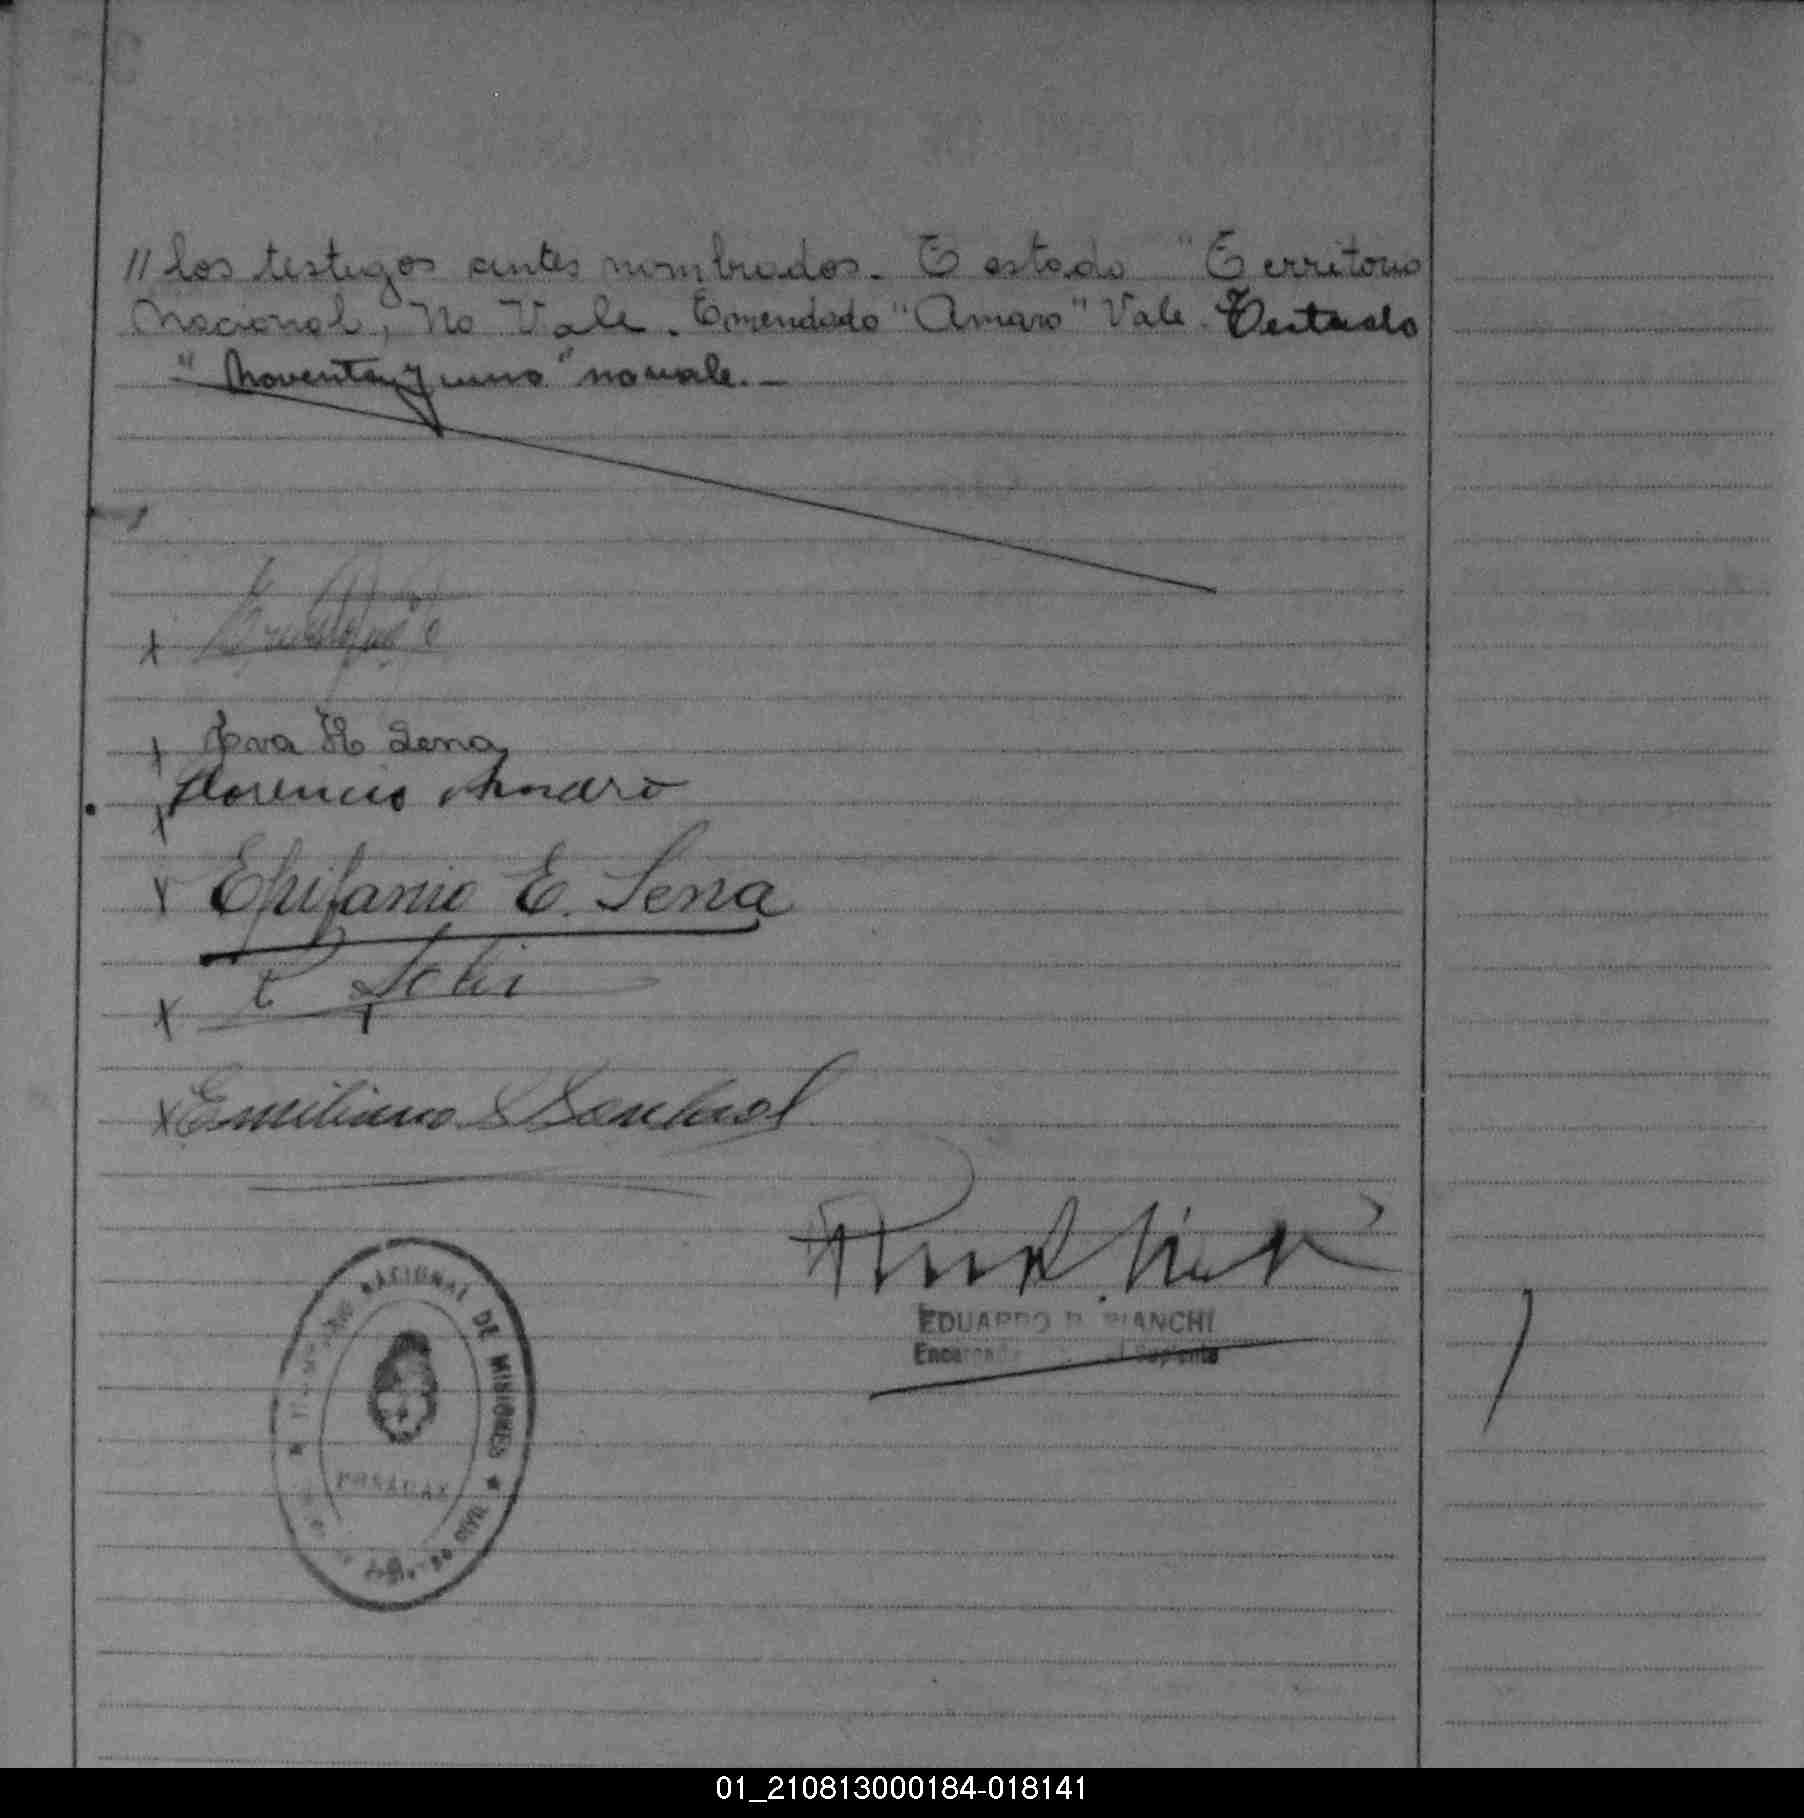 // los testigos antes nombrados. Testado "Territorio
Nacional, No Vale. Emendado "Amaro" Vale. Testado
"Noventa y uno" no vale.—
Eva H Sena
Florencio Amaro
Epifanio E. Sena
Emiliano Sandoval
EDUARDO R. BIANCHI
Encargado Suplente
NACIONAL DE MISIONES
POSADAS
01_210813000184-018141